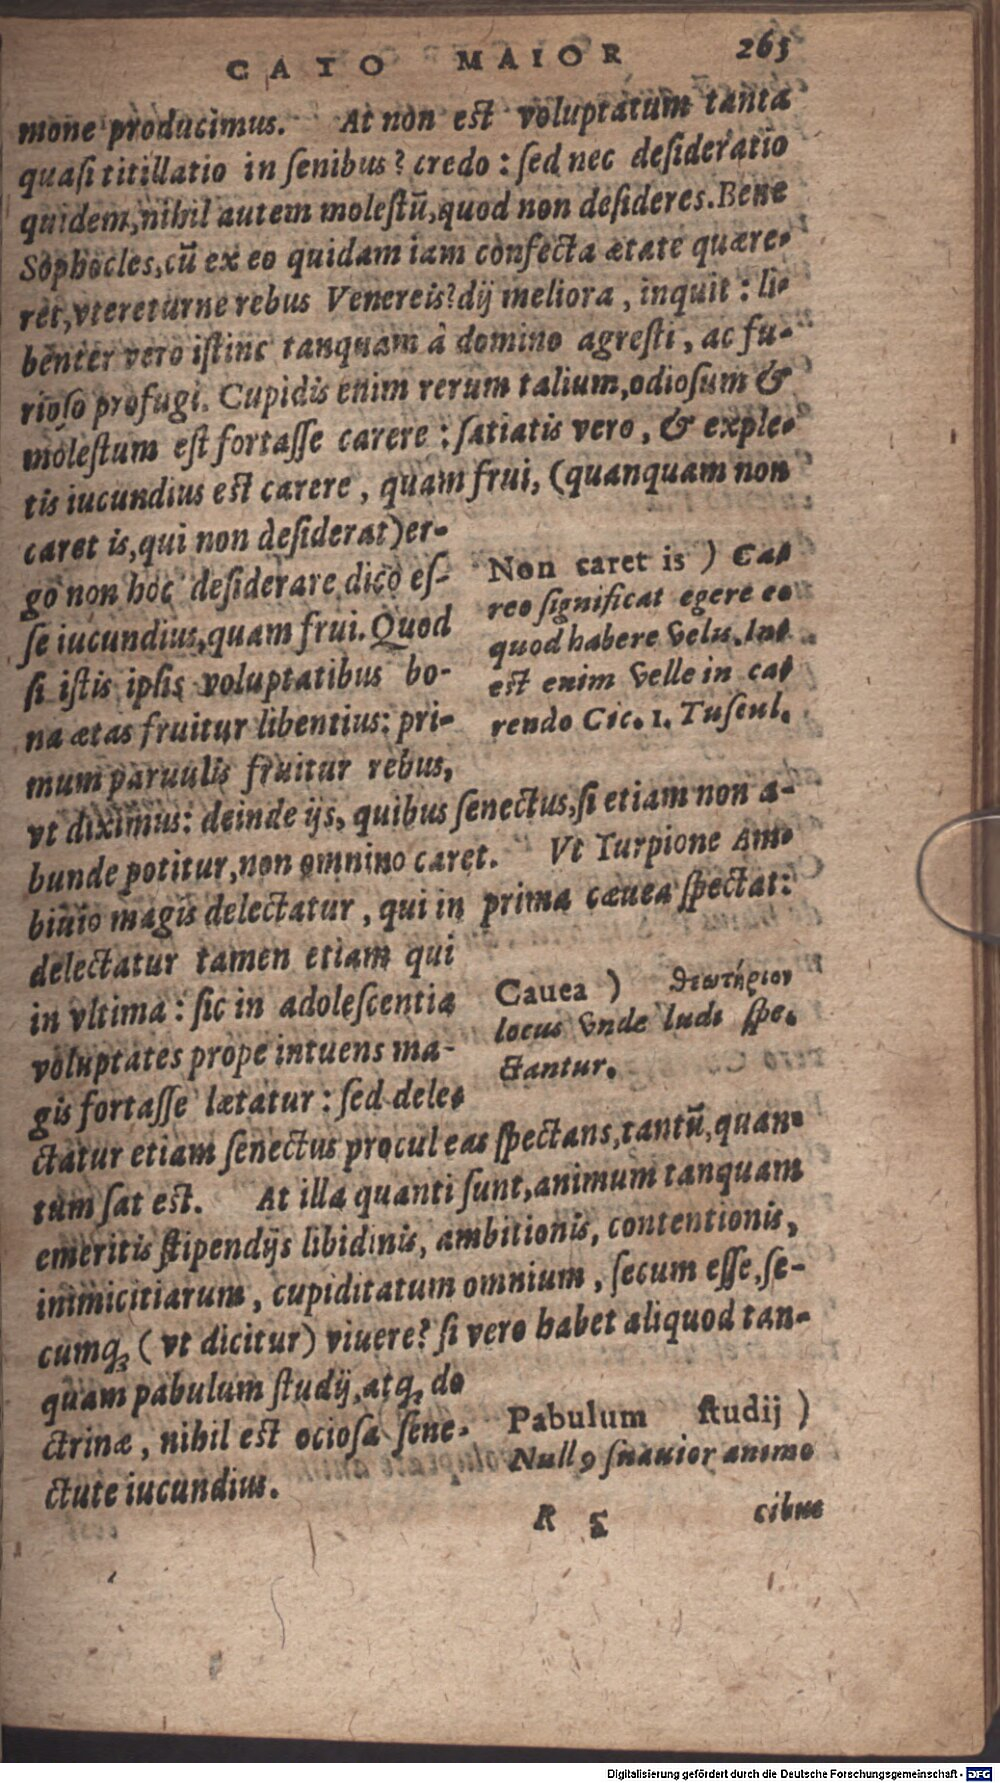 CATO MAIOR 265
mone producimus. At non est voluptatum tanta
quasi titillatio in senibus? credo: sed nec desideratio
quidem, nihil autem molestū, quod non desideres. Bene
Sophocles, cū ex eo quidam iam confecta ætate quære-
ret, vtereturne rebus Venereis? dij meliora, inquit: li-
benter vero istinc tanquam à domino agresti, ac fu-
rioso profugi. Cupidis enim rerum talium, odiosum &
molestum est fortasse carere: satiatis vero, & exple-
tis iucundius est carere, quam frui, (quanquam non
caret is, qui non desiderat) er-
go non hoc desiderare dico es-
se iucundius, quam frui. Quod
si istis ipsis voluptatibus bo-
na ætas fruitur libentius: pri-
mum paruulis fruitur rebus,
Non caret is ) Ca-
reo significat egere eo
quod habere velis. In-
est enim velle in ca-
rendo Cic. 1. Tuscul.
vt diximus: deinde ijs, quibus senectus, si etiam non a-
bunde potitur, non omnino caret. Vt Turpione Am-
biuio magis delectatur, qui in prima cæuea spectat:
delectatur tamen etiam qui
in vltima: sic in adolescentia
voluptates prope intuens ma-
gis fortasse lætatur: sed dele-
Cauea ) θεωτήριον
locus vnde ludi spe-
ctantur.
ctatur etiam senectus procul eas spectans, tantū, quan-
tum sat est. At illa quanti sunt, animum tanquam
emeritis stipendijs libidinis, ambitionis, contentionis,
inimicitiarum, cupiditatum omnium, secum esse, se-
cumq́; (vt dicitur) viuere? si vero habet aliquod tan-
quam pabulum studij, atq́; do
ctrinæ, nihil est ociosa sene-
ctute iucundius.
Pabulum studij )
Nullꝰ suauior animo
R 5 cibus
Digitalisierung gefördert durch die Deutsche Forschungsgemeinschaft - DFG